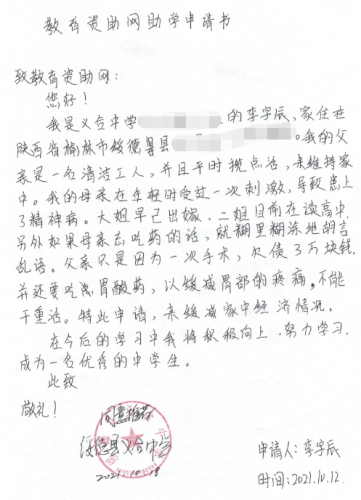 教育资助网助学申请书
致教育资助网：
您好！
我是义合中学 的李宇辰，家住在
陕西省榆林市绥德县 。我的父
亲是一名清洁工人，并且平时揽点活，来维持家
中。我的母亲在年轻时受过一次刺激，导致患上
了精神病。大姐早已出嫁，二姐目前在读高中，
另外如果母亲忘吃药的话，就糊里糊涂地胡言
乱语。父亲只是因为一次手术，欠债3万块钱，
并还要吃 胃酸药，以缓减胃部的疼痛，不能
干重活。特此申请，来缓减家中经济情况。
在今后的学习中我将积极向上，努力学习，
成为一名优秀的中学生。
此致
敬礼！
同意推荐
绥德县义合中学
2021.10.18
申请人：李宇辰
时间：2021.10.12.